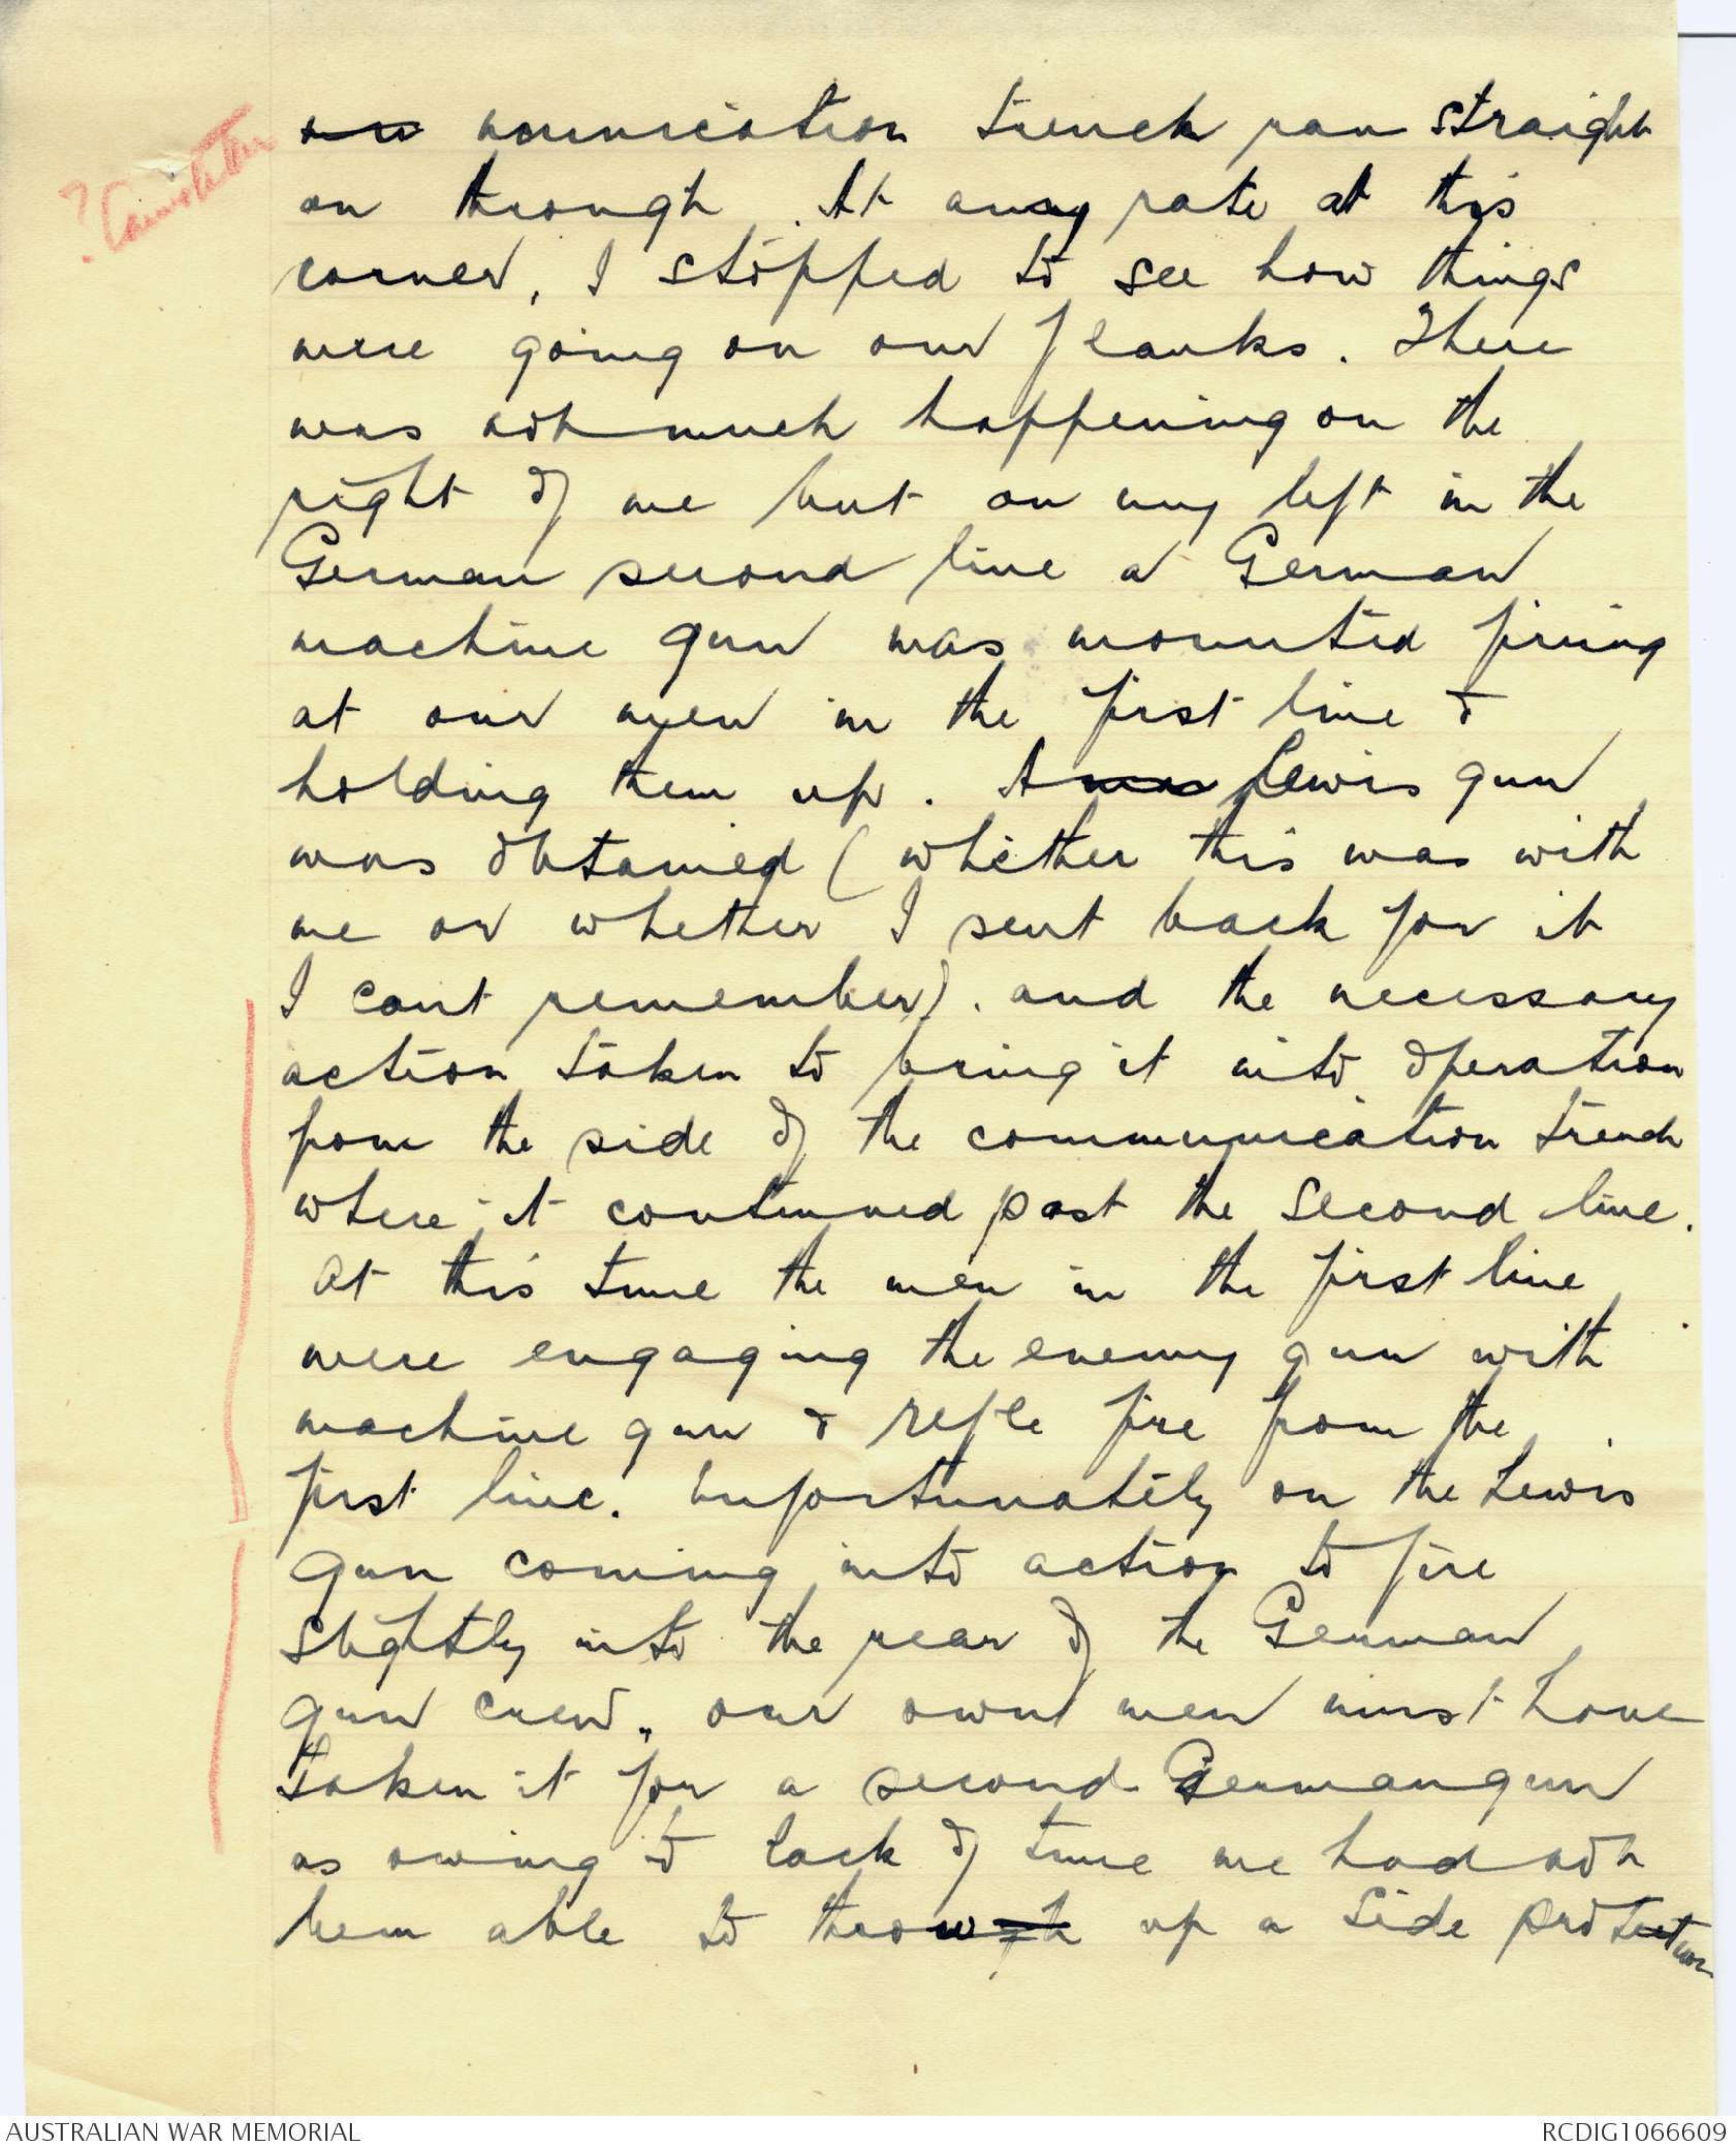 munication trench ran straight
on through. At any rate at this
corner, I stopped to see how things
were going on our flanks. There
was not much happening on the
right of me but on my left in the
German second line a German
machine gun was mounted firing
at our men in the first line &
holding them up. A Lewis gun
was obtained (whether this was with
me or whether I sent back for it
I cant remember). and the necessary
action taken to bring it into operation
from the side of the communication trench
where it continued past the second line.
At this time the men in the first line
were engaging the enemy gun with
machine gun & rifle fire from the
first line. Unfortunately on the Lewis
gun coming into action to fire
slightly into the rear of the German
gun crew, our own men must have
taken it for a second German gun
as owing to lack of time we had not
been able to throw up a side protection
AUSTRALIAN WAR MEMORIAL
RCDIG1066609